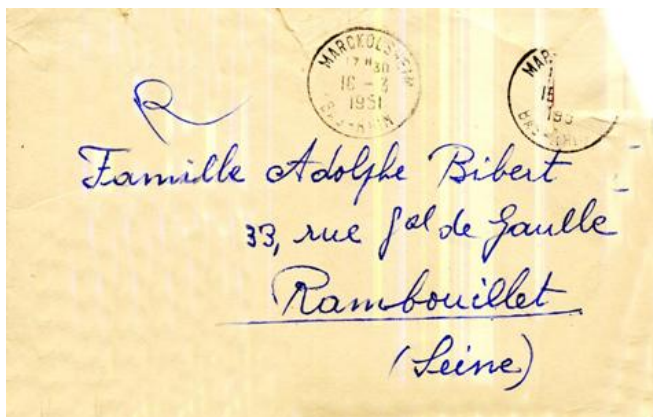 MARCKOLSHEIM
17 H30
16 - 3
1951
BAS-RHIN
MAR
15
195
BAS-RHIN
R
Famille Adolphe Bibert
33, rue Gal de Gaulle
Rambouillet
(Seine)